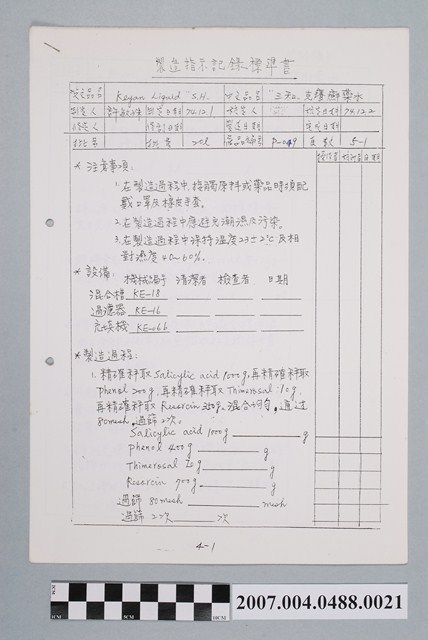 製造指示記錄標準書
Keyan Liquid "S.H."
"三友" 克癢癬藥水
製造日期
P-049 頁數 5-1
* 注意事項:
1. 在製造過程中,接觸原料或藥品時須配
戴口罩及橡皮手套。
2. 在製造過程中應避免潮濕及污染。
3. 在製造過程中保持溫度23±2℃及相
對濕度40~60%。
* 設備: 機械編號 清潔者 檢查者 日期
混合槽 KE-18
過濾器 KE-16
充填機 KE-066
* 製造過程:
1. 精確秤取Salicylic acid 1000g,再精確秤取
phenol 200g,再精確秤取Thimerosal 10g,
再精確秤取Resorcin 350g,混合均勻,通過
80mesh,過篩2次。
Salicylic acid 1000g g
phenol 400g g
Thimerosal 20g g
Resorcin 700g g
過篩 80mesh mesh
過篩 2次 次
4-1
2007.004.0488.0021